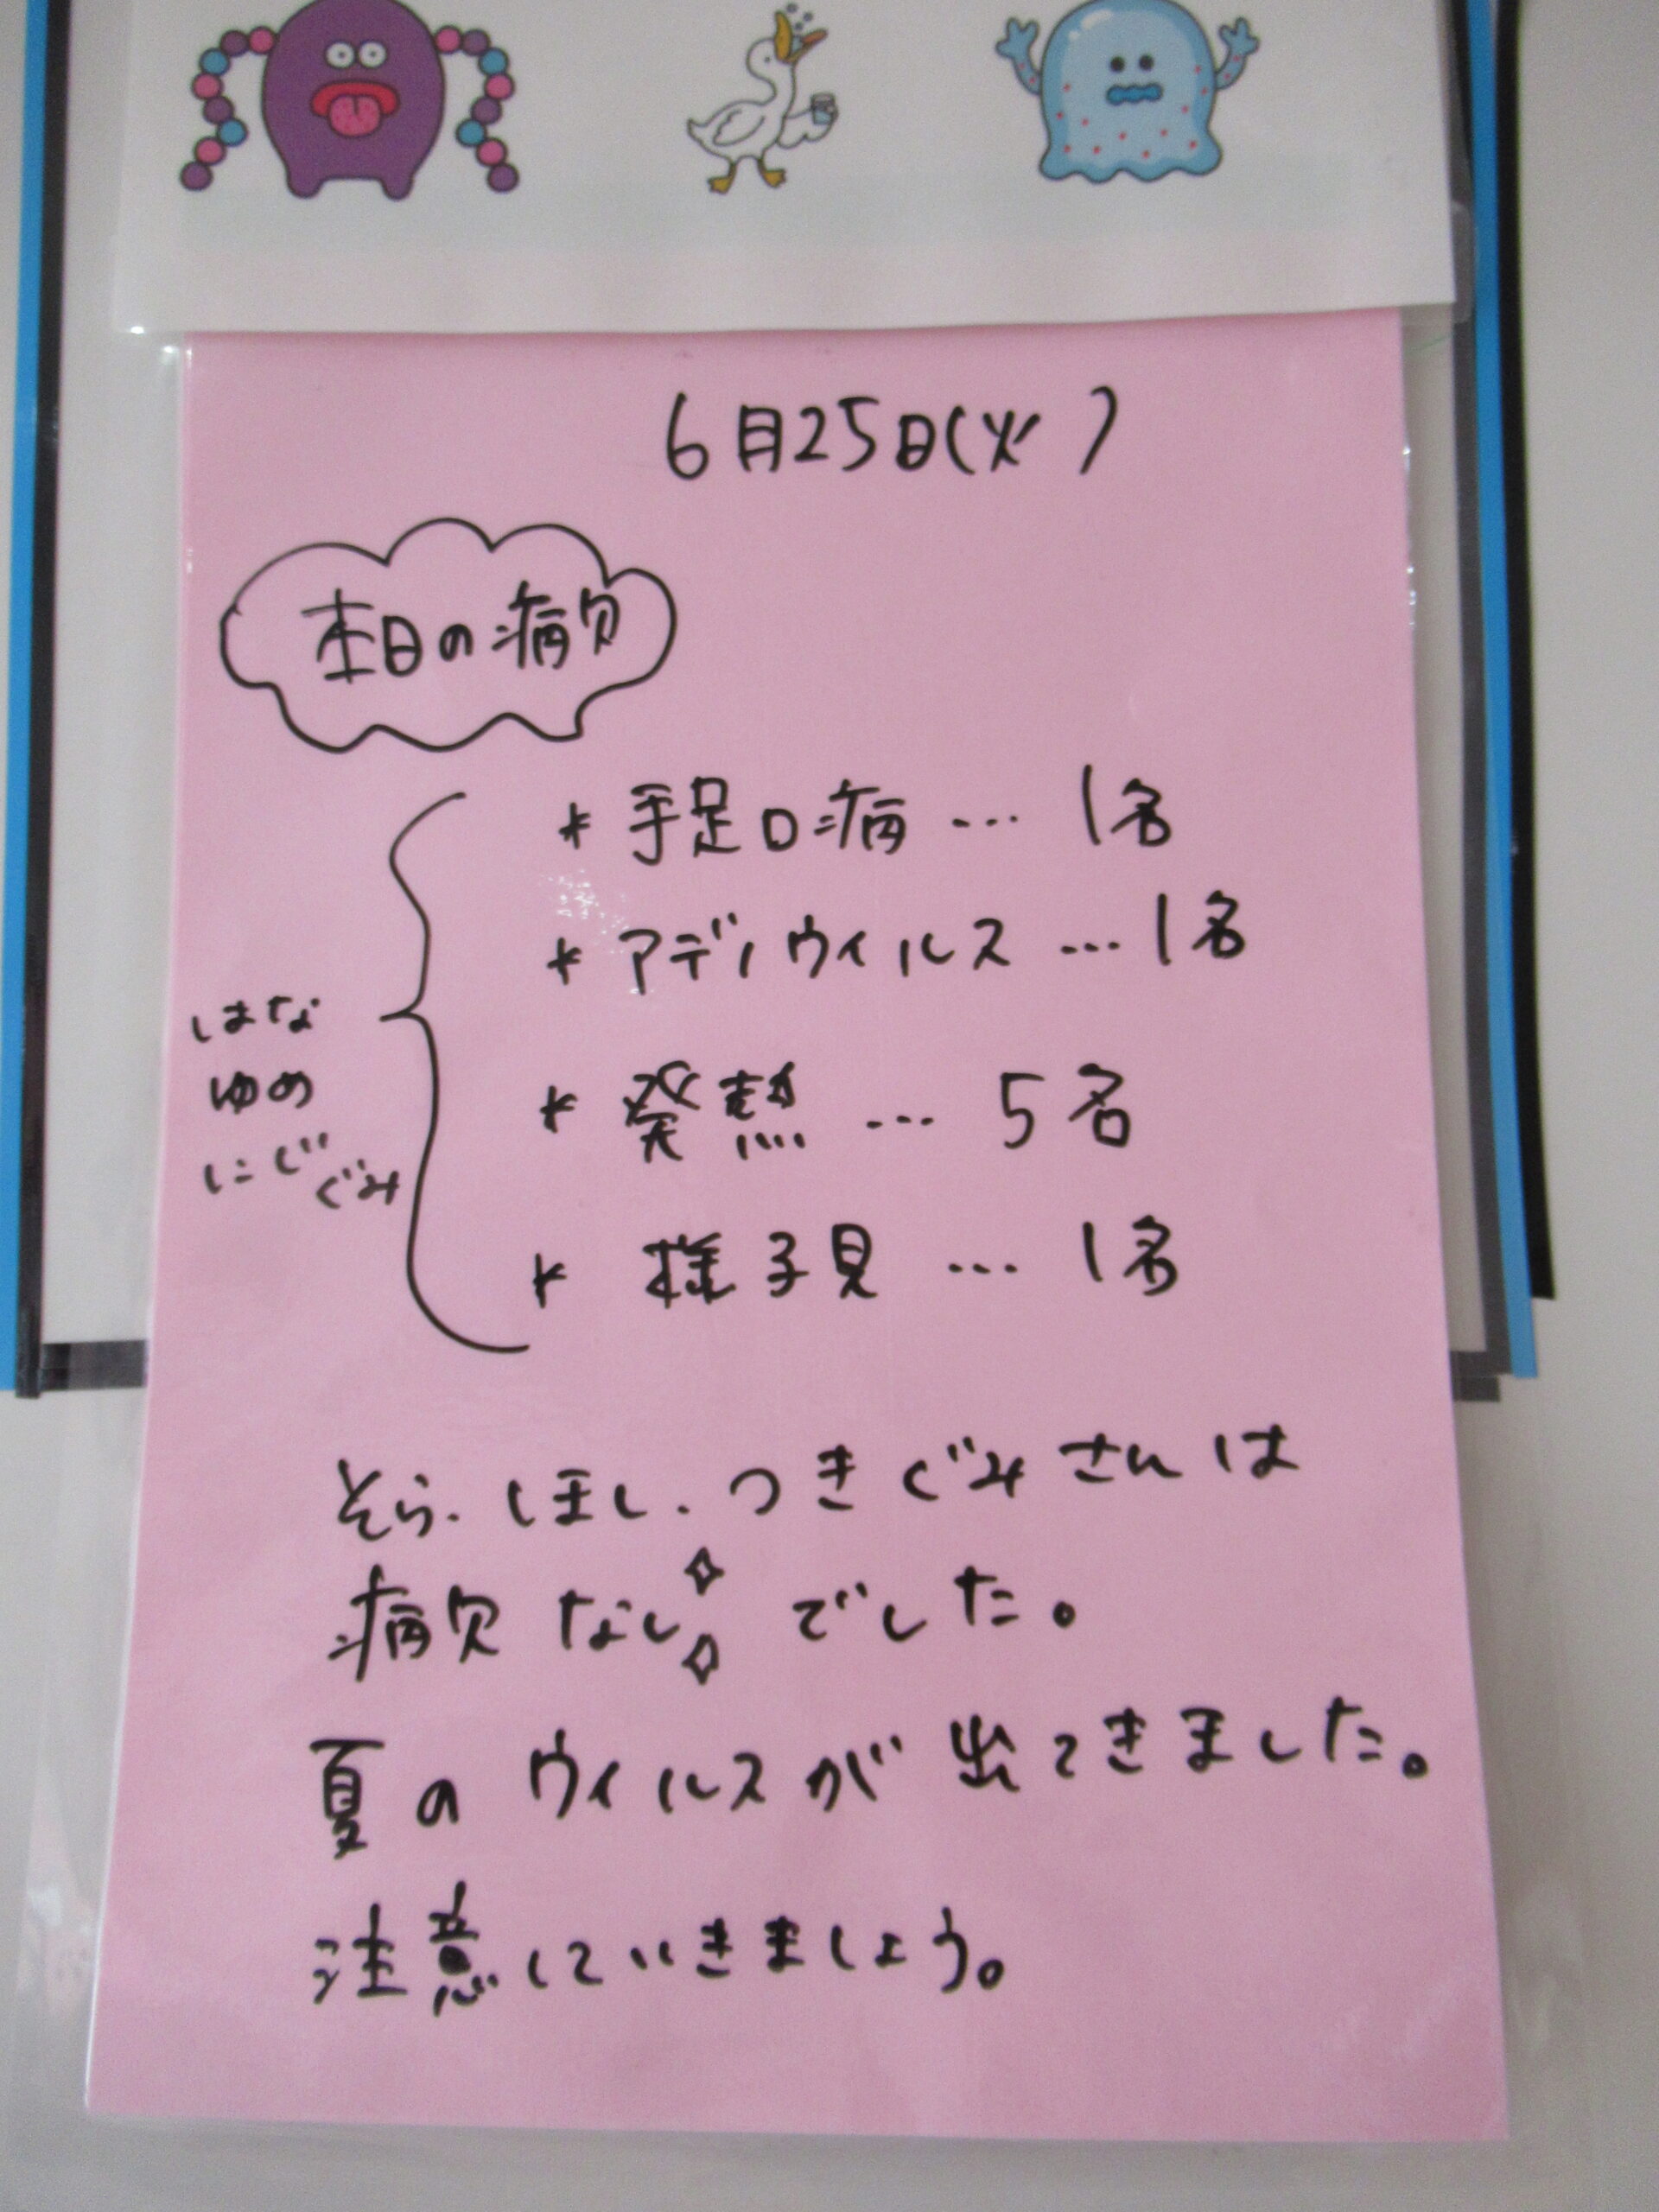 6月25日(火)
本日の病欠
* 手足口病 … 1名
* アデノウィルス … 1名
* 発熱 … 5名
* 様子見 … 1名
はな
ゆめ
にじぐみ
そら.ほし.つきぐみさんは
病欠なしでした。
夏のウィルスが出てきました。
注意していきましょう。